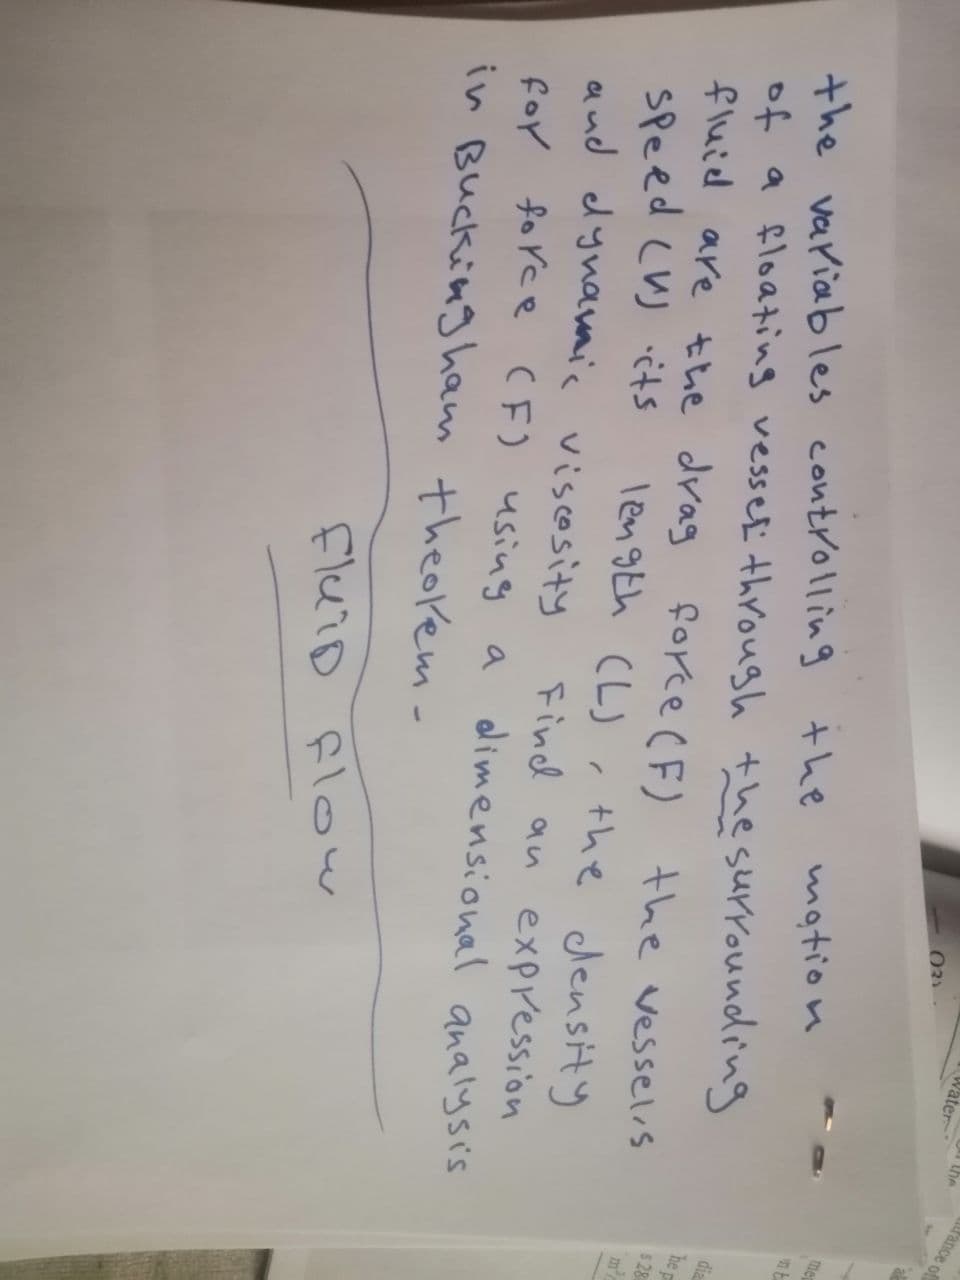 the variables controlling the motion
of a floating vessel through the surrounding
fluid are the drag force (F) the vessel's
speed (u) its length (L), the density
and dynamic viscosity Find an expression
for force (F) using a dimensional analysis
in Buckingham theorem-
FLuiD Flow
water